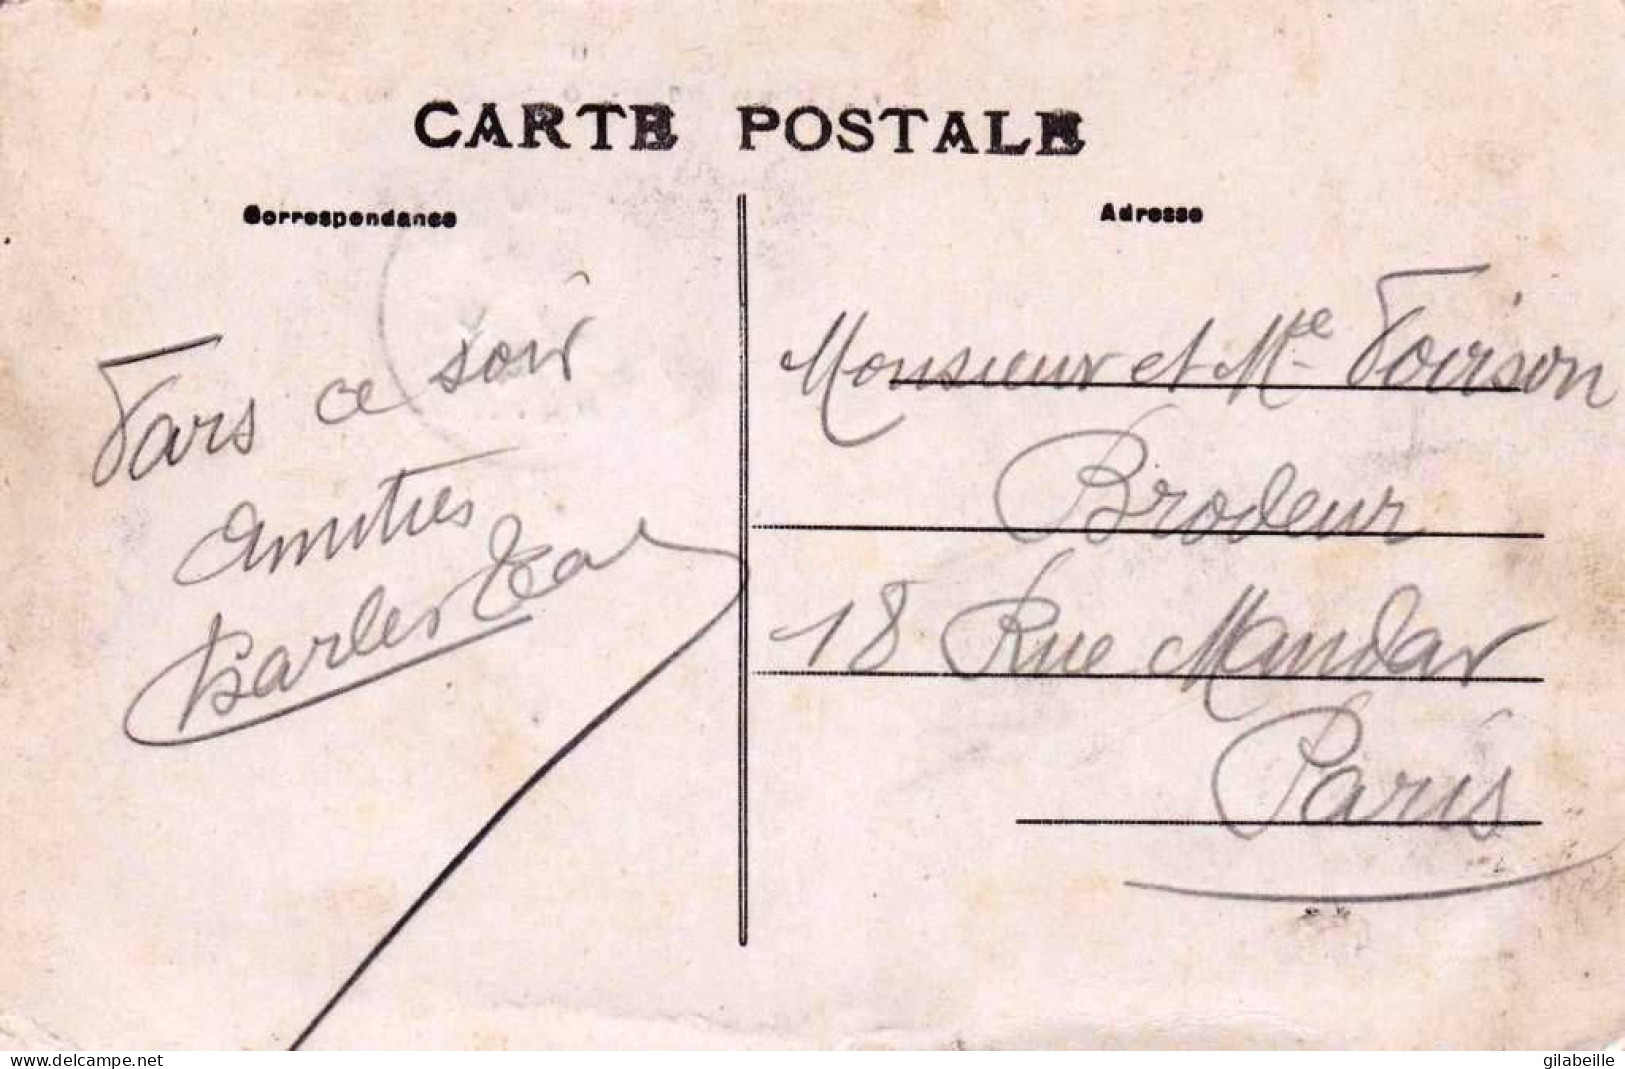 CARTE POSTALE
Correspondance
Adresse
Pars ce soir
Amitiés
Monsieur et Mme Voirson
Brodeur
18 Rue Mandar
Paris
www.delcampe.net
gilabeille